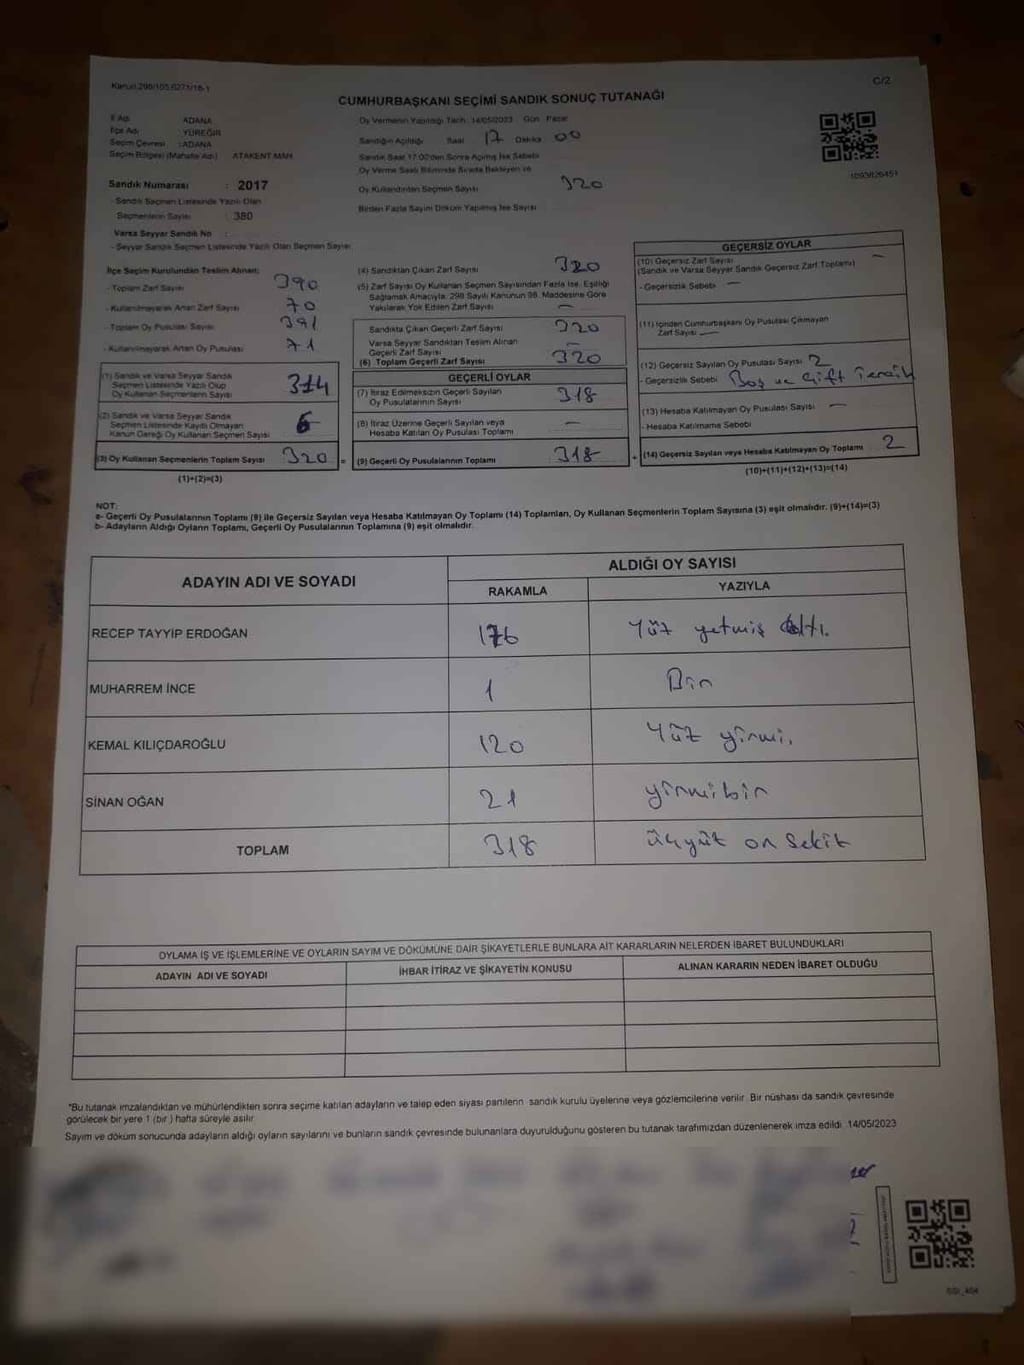 Kanun:298/105,6271/18-1
C/2
CUMHURBAŞKANI SEÇİMİ SANDIK SONUÇ TUTANAĞI
İl Adı ADANA
İlçe Adı YÜREĞİR
Seçim Çevresi :ADANA
Seçim Bölgesi (Mahalle Adı) ATAKENT MAH.
Sandık Numarası : 2017
- Sandık Seçmen Listesinde Yazılı Olan
Seçmenlerin Sayısı : 380
Varsa Seyyar Sandık No :
- Seyyar Sandık Seçmen Listesinde Yazılı Olan Seçmen Sayısı
Oy Vermenin Yapıldığı Tarih: 14/05/2023 Gün: Pazar
Sandığın Açıldığı Saat 17 Dakika 00
Sandık Saat 17:00'den Sonra Açılmış İse Sebebi
Oy Verme Saati Bitiminde Sırada Bekleyen ve
Oy Kullandırılan Seçmen Sayısı 320
Birden Fazla Sayım Döküm Yapılmış İse Sayısı
1093826451
İlçe Seçim Kurulundan Teslim Alınan;
- Toplam Zarf Sayısı 390
- Kullanılmayarak Artan Zarf Sayısı 70
- Toplam Oy Pusulası Sayısı 391
- Kullanılmayarak Artan Oy Pusulası 71
(1) Sandık ve Varsa Seyyar Sandık
Seçmen Listesinde Yazılı Olup
Oy Kullanan Seçmenlerin Sayısı 314
(2) Sandık ve Varsa Seyyar Sandık
Seçmen Listesinde Kayıtlı Olmayan
Kanun Gereği Oy Kullanan Seçmen Sayısı 6
(3) Oy Kullanan Seçmenlerin Toplam Sayısı 320 =
(1)+(2)=(3)
(4) Sandıktan Çıkan Zarf Sayısı 320
(5) Zarf Sayısı Oy Kullanan Seçmen Sayısından Fazla İse, Eşitliği
Sağlamak Amacıyla, 298 Sayılı Kanunun 98. Maddesine Göre
Yakılarak Yok Edilen Zarf Sayısı —
Sandıkta Çıkan Geçerli Zarf Sayısı 320
Varsa Seyyar Sandıktan Teslim Alınan
Geçerli Zarf Sayısı —
(6) Toplam Geçerli Zarf Sayısı 320
GEÇERLİ OYLAR
(7) İtiraz Edilmeksizin Geçerli Sayılan
Oy Pusulalarının Sayısı 318
(8) İtiraz Üzerine Geçerli Sayılan veya
Hesaba Katılan Oy Pusulası Toplamı —
(9) Geçerli Oy Pusulalarının Toplamı 318 +
GEÇERSİZ OYLAR
(10) Geçersiz Zarf Sayısı —
(Sandık ve Varsa Seyyar Sandık Geçersiz Zarf Toplamı)
- Geçersizlik Sebebi —
(11) İçinden Cumhurbaşkanı Oy Pusulası Çıkmayan
Zarf Sayısı —
(12) Geçersiz Sayılan Oy Pusulası Sayısı 2
- Geçersizlik Sebebi Boş ve Çift Tercih
(13) Hesaba Katılmayan Oy Pusulası Sayısı —
- Hesaba Katılmama Sebebi
(14) Geçersiz Sayılan veya Hesaba Katılmayan Oy Toplamı 2
(10)+(11)+(12)+(13)=(14)
NOT:
a- Geçerli Oy Pusulalarının Toplamı (9) ile Geçersiz Sayılan veya Hesaba Katılmayan Oy Toplamı (14) Toplamları, Oy Kullanan Seçmenlerin Toplam Sayısına (3) eşit olmalıdır. (9)+(14)=(3)
b- Adayların Aldığı Oyların Toplamı, Geçerli Oy Pusulalarının Toplamına (9) eşit olmalıdır.
ADAYIN ADI VE SOYADI
ALDIĞI OY SAYISI
RAKAMLA YAZIYLA
RECEP TAYYİP ERDOĞAN 176 Yüz yetmiş altı.
MUHARREM İNCE 1 Bir
KEMAL KILIÇDAROĞLU 120 Yüz yirmi.
SİNAN OĞAN 21 yirmibir
TOPLAM 318 üçyüz on sekiz
OYLAMA İŞ VE İŞLEMLERİNE VE OYLARIN SAYIM VE DÖKÜMÜNE DAİR ŞİKAYETLERLE BUNLARA AİT KARARLARIN NELERDEN İBARET BULUNDUKLARI
ADAYIN ADI VE SOYADI İHBAR İTİRAZ VE ŞİKAYETİN KONUSU ALINAN KARARIN NEDEN İBARET OLDUĞU
*Bu tutanak imzalandıktan ve mühürlendikten sonra seçime katılan adayların ve talep eden siyasi partilerin sandık kurulu üyelerine veya gözlemcilerine verilir. Bir nüshası da sandık çevresinde
görülecek bir yere 1 (bir ) hafta süreyle asılır.
Sayım ve döküm sonucunda adayların aldığı oyların sayılarını ve bunların sandık çevresinde bulunanlara duyurulduğunu gösteren bu tutanak tarafımızdan düzenlenerek imza edildi. 14/05/2023